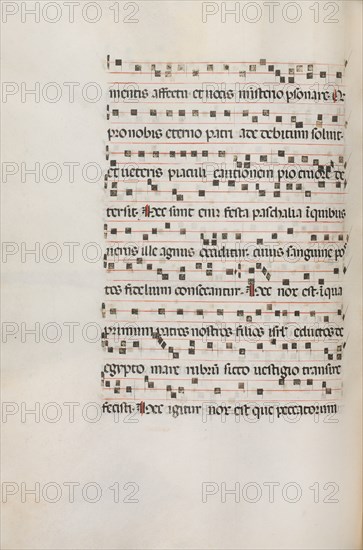 mentis affectu et uocis misterio psonare. Q
pro nobis eterno patri ade debitum soluit.
et ueteris piaculi cautionem pio cruore de
tersit. Hec sunt enim festa paschalia in quibus
uerus ille agnus occiditur. cuius sanguine po
tes fidelium consecantur. Hec nox est in qua
primum patres nostros filios isrl eductos de
egypto mare rubru sicco uestigio transire
fecisti. Hec igitur nox est que peccatorum